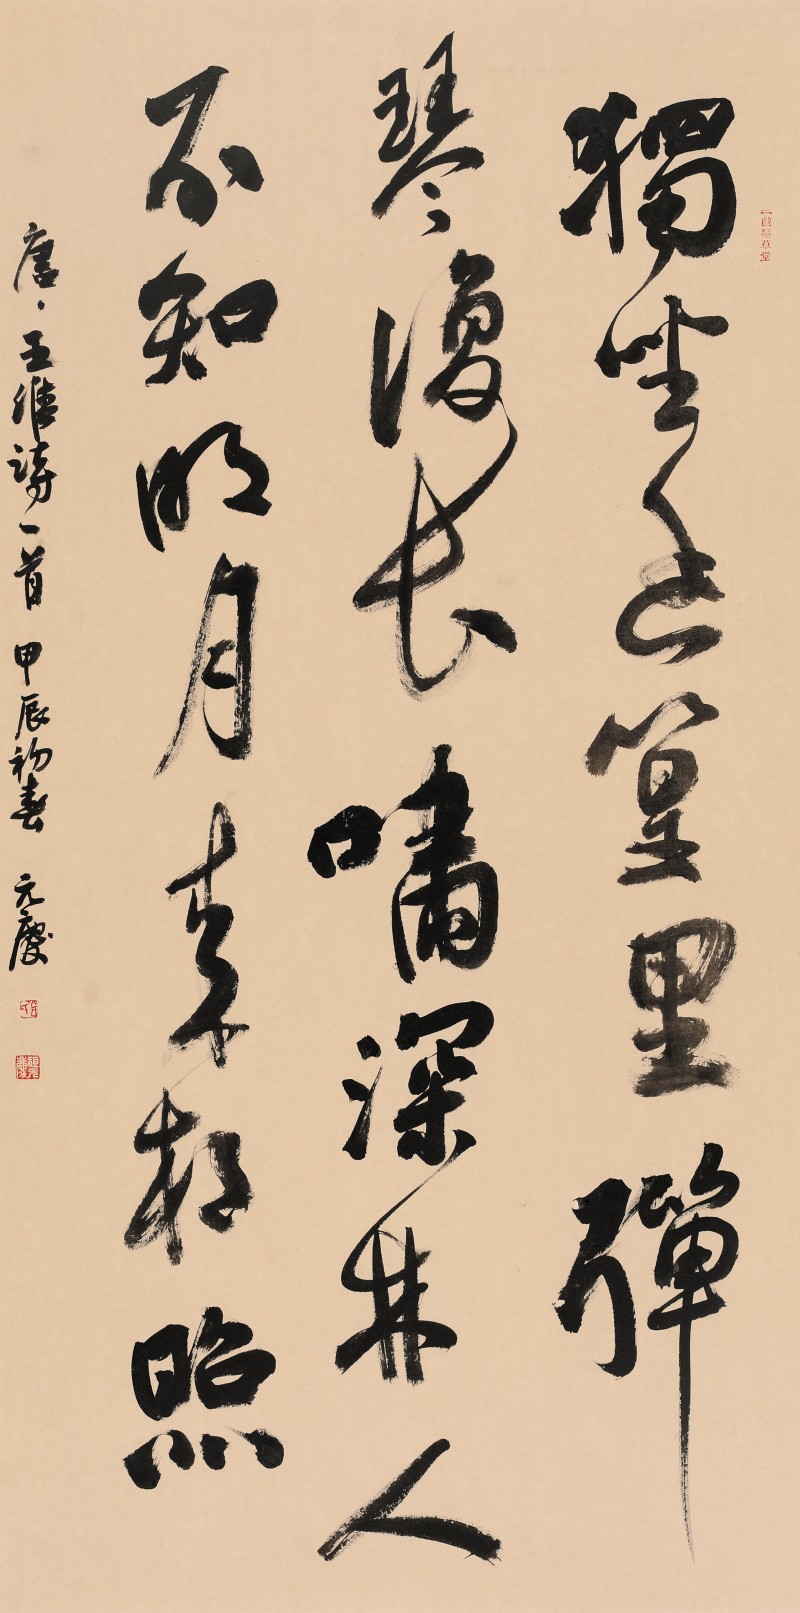 獨坐幽篁里彈
琴復長嘯深林人
不知明月来相照
唐、王維詩一首 甲辰初春 元慶